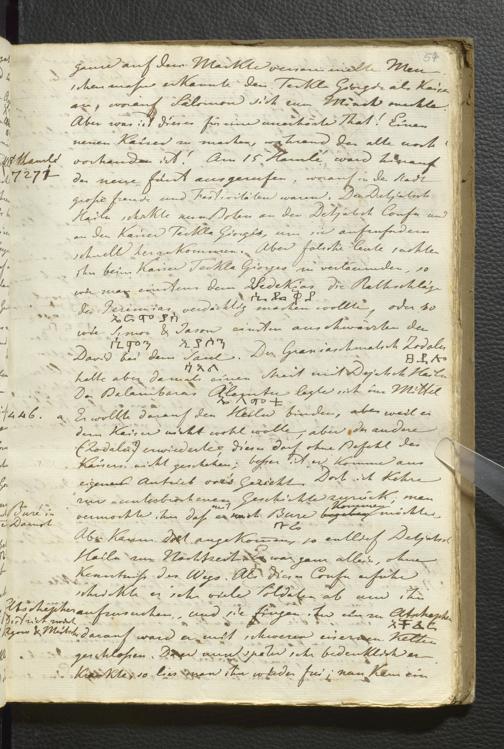 57
ganze auf dem Markte versammelte Men-
schenmasse erkannte den Teckla Giorgis als Kaiser
an, worauf Salomon sich zum Mönch machte.
Aber was ist dieses für eine unerhörte That! Einen
neuen Kaiser zu machen, während der alte noch
vorhanden ist! Am 15 Hamle, ward hierauf
der neue Fürst ausgerufen, worauf in der Stadt
große Freude und Festivitäten waren. Der Detjatsch
Hailu schickte nun Boten an den Detjatsch Confu und
an den Kaiser Teckla Giorgis, um sie aufzufordern
schnell herzukommen. Aber falsche Leute suchten
ihn beim Kaiser Teckla Giorgis zu verläumden, so
wie man einstens dem Zedekias die Rathschläge
des Jeremias verdächtig machen wollte, oder so
wie Simos & Jason einsten anschwärzten den
David bei dem Saul. Der Grasiaschmatsch Zodalu
hatte aber damals einen Streit mit Dejatsch Hailu
Der Balambaras legte sich ins Mittel
Er wollte darauf den Hailu binden, aber weil er
dem Kaiser nicht wohl wollte, aber der andere
(Zodalu?) erwiederte, dieses darf ohne Befehl des
Kaisers nicht geschehen; besser ist er komme aus
eigenem Antrieb vors Gericht. Doch ich kehre
zur unterbrochenen Geschichte zurück, man
vermochte ihn daß er nach Bure kommen möchte
Aber kaum dort angekommen, so entlief Detjatsch
Hailu zur Nachtzeit ganz allein, ohne
Kenntniß des Wegs. Als dieses Confu erfuhr
schickte er sehr viele Soldaten ab um ihn
aufzusuchen, und sie fingen ihn
darauf ward er mit schweren eisernen Ketten
geschlossen. Da er nun später sich bedenklich er-
krankte, so lies man ihn wieder frei; nun kam ein
15 Hamle
7271
446. a
Bure in
Damot
District